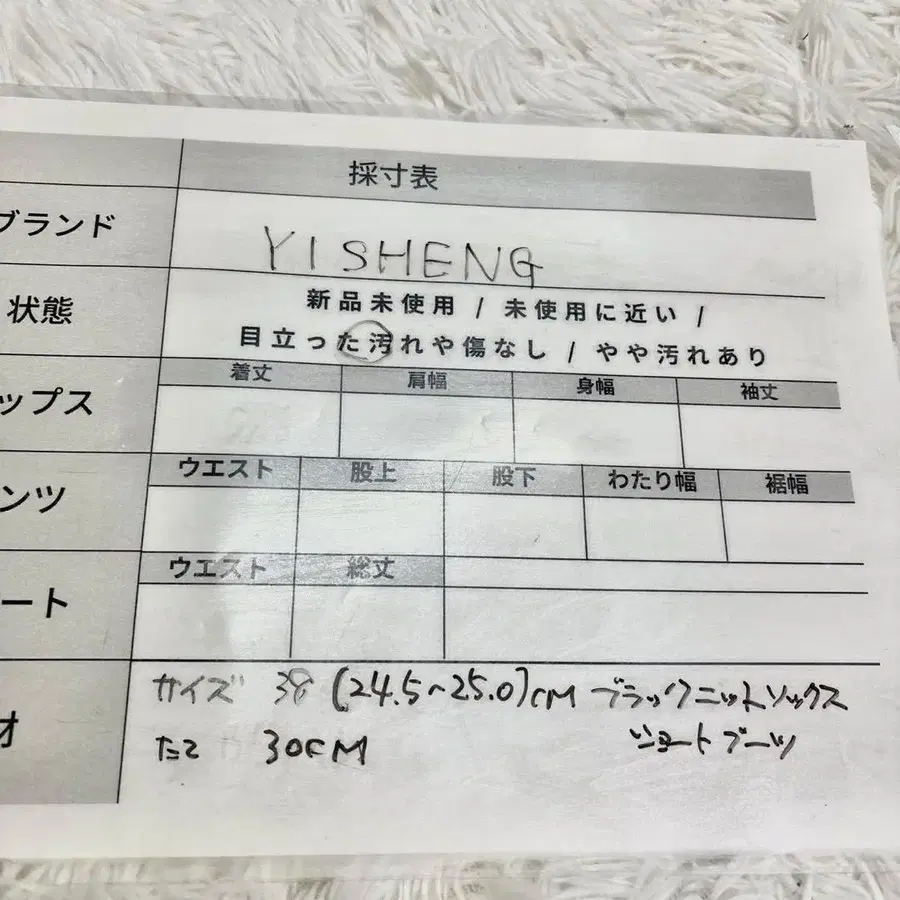 採寸表
ブランド
YISHENG
状態
新品未使用 / 未使用に近い /
目立った汚れや傷なし / やや汚れあり
ップス
着丈 肩幅 身幅 袖丈
ンツ
ウエスト 股上 股下 わたり幅 裾幅
ート
ウエスト 総丈
サイズ 38 (24.5~25.0)cM ブラックニットソックス
ショートブーツ
たて 30cM